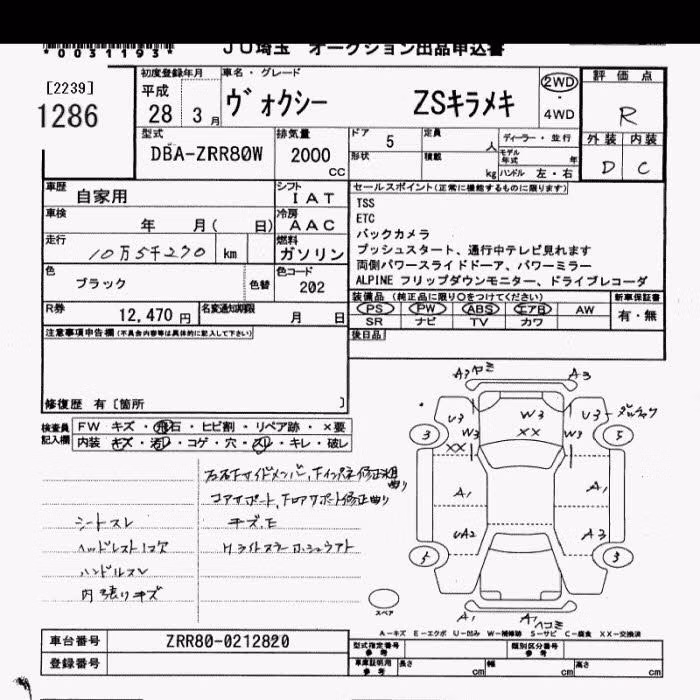 *0031193*
JU埼玉 オークション出品申込書
[2239]
1286
初度登録年月
平成
28 3 月
車名・グレード
ヴォクシー ZSキラメキ
2WD
・
4WD
評価点
R
外装 内装
D C
型式
DBA-ZRR80W
排気量
2000
CC
ドア 5
定員 人
ディーラー・並行
形状
積載 kg
モデル年式 年
ハンドル 左・右
車歴
自家用
シフト
IAT
車検
年 月( 日)
冷房
AAC
走行
10万5千270 km
燃料
ガソリン
色
ブラック
色替
色コード
202
R券
12,470 円
名変通知期限
月 日
セールスポイント(正常に機能するものに限ります)
TSS
ETC
バックカメラ
プッシュスタート、通行中テレビ見れます
両側パワースライドドーア、パワーミラー
ALPINE フリップダウンモニター、ドライブレコーダ
装備品 (純正品に限り○をつけてください)
新車保証書
PS PW ABS エアB AW
SR ナビ TV カワ
有・無
注意事項申告欄(不具合内容等は具体的に記入して下さい)
後日品
修復歴 有〔箇所 〕
検査員
記入欄
FW キズ・飛石・ヒビ割・リペア跡・×要
内装 キズ・汚れ・コゲ・穴・スレ・キレ・破レ
シートスレ
ヘッドレスト1コ欠
ハンドルスレ
内張りキズ
キズ、E
A3
A3
U3
W3
XX
W3
XX
W3
U3
3
5
A1
A1
UA2
A3
5
3
スペア
A1
A1
ヘコミ
A-キズ E-エクボ U-凹み W-補修跡 S-サビ C-腐食 XX-交換済
車台番号
ZRR80-0212820
登録番号
型式指定番号
参考
類別区分番号
参考
車庫証明用
参考
長さ cm
幅 cm
高さ cm